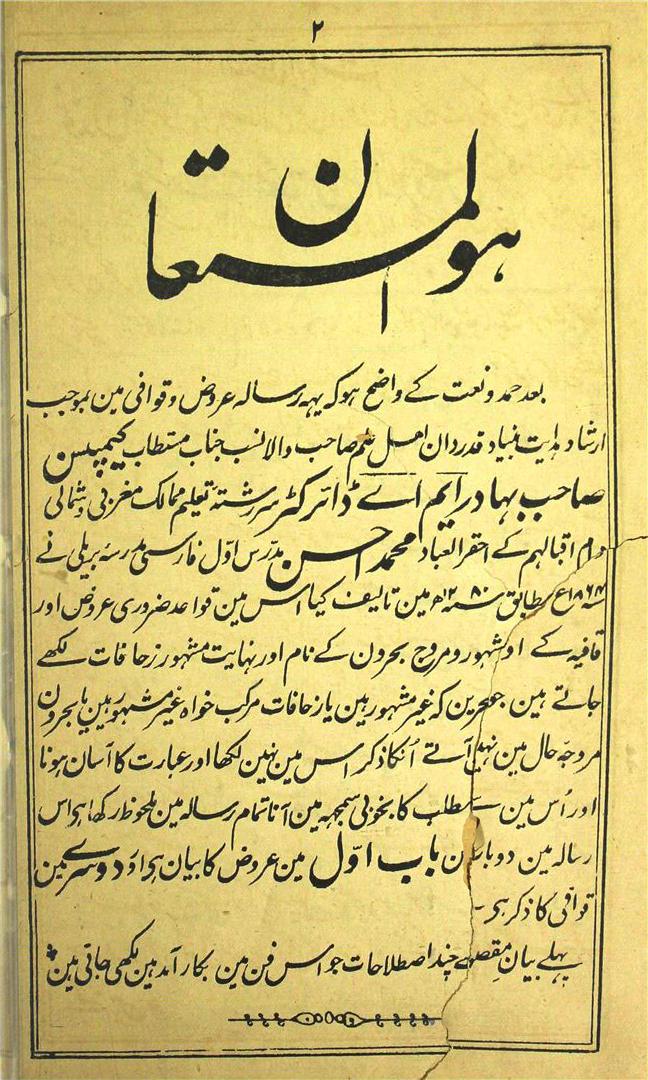 ۲
هو المستعان
بعد حمد و نعت کے واضح ہو کہ یہہ رسالہ عروض و قوافی مین بموجب
ارشاد ہدایت بنیاد قدردان اہل علم صاحب والا نسب جناب مستطاب کیمپسن
صاحب بہادر ایم اے ڈائرکٹر سررشتہ تعلیم ممالک مغربی و شمالی
دام اقبالہم کے احقر العباد محمد احسن مدرس اوّل فارسی مدرسہ بریلی نے
سنہ ۱۸۶۴ع مطابق سنہ ۱۲۸۰ھ مین تالیف کیا اس مین قواعد ضروری عروض اور
قافیہ کے اور مشہور و مروج بحرون کے نام اور نہایت مشہور زحافات لکھے
جاتے ہین جو بحرین کہ غیر مشہور ہین یا زحافات مرکب خواہ غیر مشہور ہین یا بحرون
مروجہ حال مین نہین آتے اُنکا ذکر اس مین نہین لکھا اور عبارت کا آسان ہونا
اور اُس مین سے مطلب کا بخوبی سمجہہ مین آنا تمام رسالہ مین ملحوظ رکھا ہی اس
رسالہ مین دو باب ہین باب اوّل مین عروض کا بیان ہی اور دوسرے مین
قوافی کا ذکر ہی۔
پہلے بیان مقصد سے چند اصطلاحات جو اس فن مین بکار آمد ہین لکھی جاتی ہین